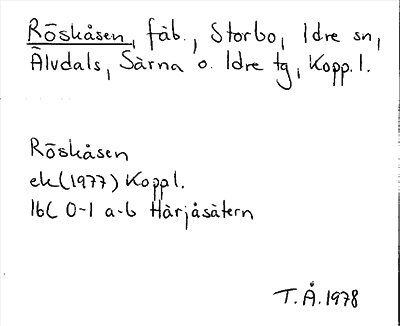 Röskåsen, fäb., Storbo, Idre sn,
Älvdals, Särna o. Idre tg, Kopp. l.
Röskåsen
ek (1977) Koppl.
16C 0-1 a-b Härjåsätern
T.Å. 1978